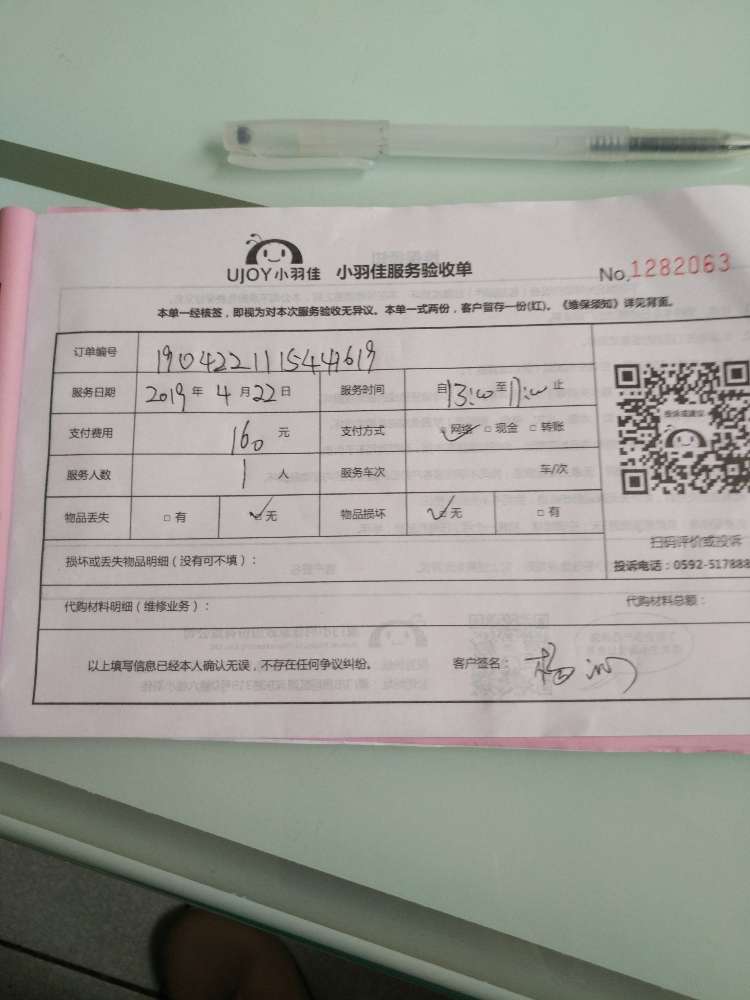 UJOY小羽佳 小羽佳服务验收单 No.1282063
本单一经核签，即视为对本次服务验收无异议。本单一式两份，客户留存一份(红)。《维保须知》详见背面。
订单编号 19042211154441619
服务日期 2019年4月22日 服务时间 自13:00至17:00止
支付费用 160元 支付方式 网络 □现金 □转账
服务人数 1人 服务车次 车/次
物品丢失 □有 无 物品损坏 无 □有
投诉或建议
扫码评价或投诉
损坏或丢失物品明细（没有可不填）：
投诉电话：0592-517888
代购材料明细（维修业务）： 代购材料总额：
以上填写信息已经本人确认无误，不存在任何争议纠纷。 客户签名：